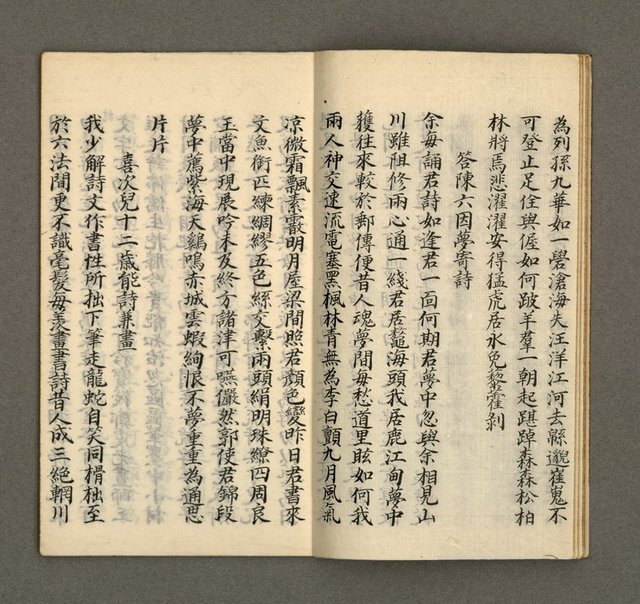 為列孫九華如一礐滄海失汪洋江河去緜邈崔嵬不
可登止足佺與偓如何跛羊羣一朝起踸踔森森松柏
林將焉悲濯濯安得猛虎居永免藜藿剝
答陳六因夢寄詩
余每誦君詩如逢君一面何期君夢中忽與余相見山
川雖阻修兩心通一綫君居鼇海頭我居鹿江甸夢中
獲往來較於郵傳便昔人魂夢間每愁道里眩如何我
兩人神交速流電塞黑楓林青無為李白顫九月風氣
凉微霜飄素霰明月屋梁間照君顏色變昨日君書來
文魚銜匹練綢繆五色絲交繫兩頭絹明珠繚四周良
玉當中現展吟未及終方諸津可嚥儼然郭使君錦段
夢中薦紫海天雞鳴赤城雲蝦絢恨不夢重重為通思
片片
喜次兒十二歲能詩兼畫
我少解詩文作書性所拙下筆走龍蛇自笑同榾柮至
於六法間更不識毫髮每羨畫書詩昔人成三絕輞川